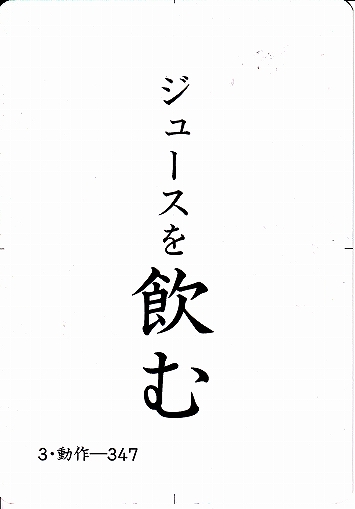 ジュースを飲む
3・動作―347